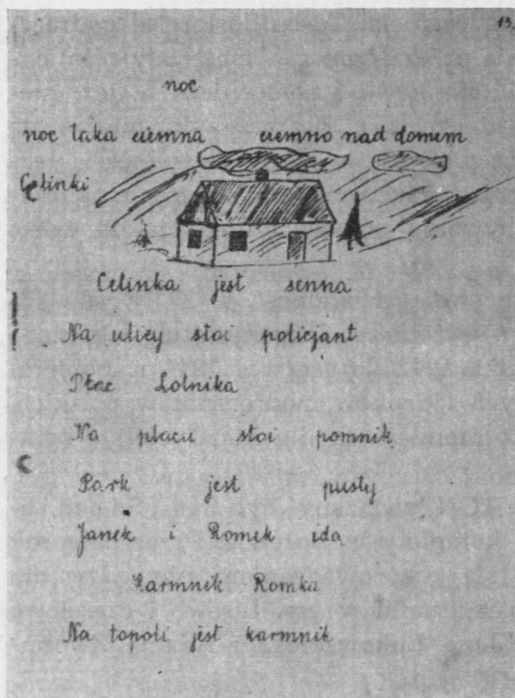 13.
noc
noc taka ciemna ciemno nad domem
Celinki
Celinka jest senna
Na ulicy stoi policjant
Plac Lotnika
Na placu stoi pomnik
Park jest pusty
Janek i Romek ida
Karmnik Romka
Na topoli jest karmnik